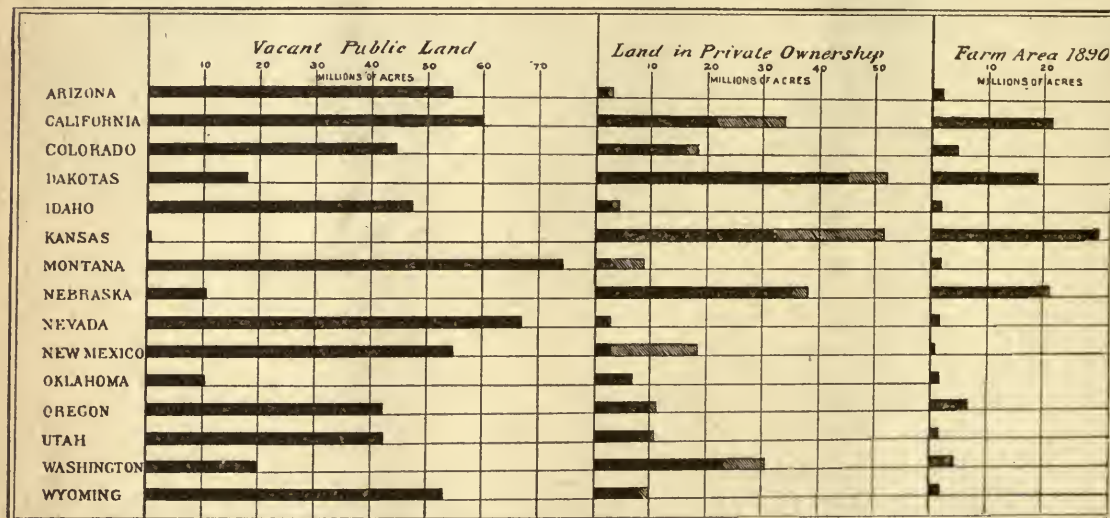 Vacant Public Land
10 20 30 40 50 60 70
MILLIONS OF ACRES
Land in Private Ownership
10 20 30 40 50
MILLIONS OF ACRES
Farm Area 1890
10 20
MILLIONS OF ACRES
ARIZONA
CALIFORNIA
COLORADO
DAKOTAS
IDAHO
KANSAS
MONTANA
NEBRASKA
NEVADA
NEW MEXICO
OKLAHOMA
OREGON
UTAH
WASHINGTON
WYOMING